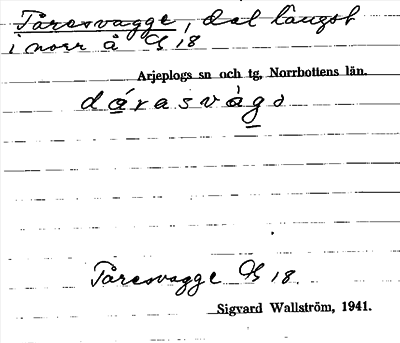 Tåresvagge, dal längst
i norr å Gb 18
Arjeplogs sn och tg, Norrbottens län.
dárasvágə
Tåresvagge Gb 18.
Sigvard Wallström, 1941.